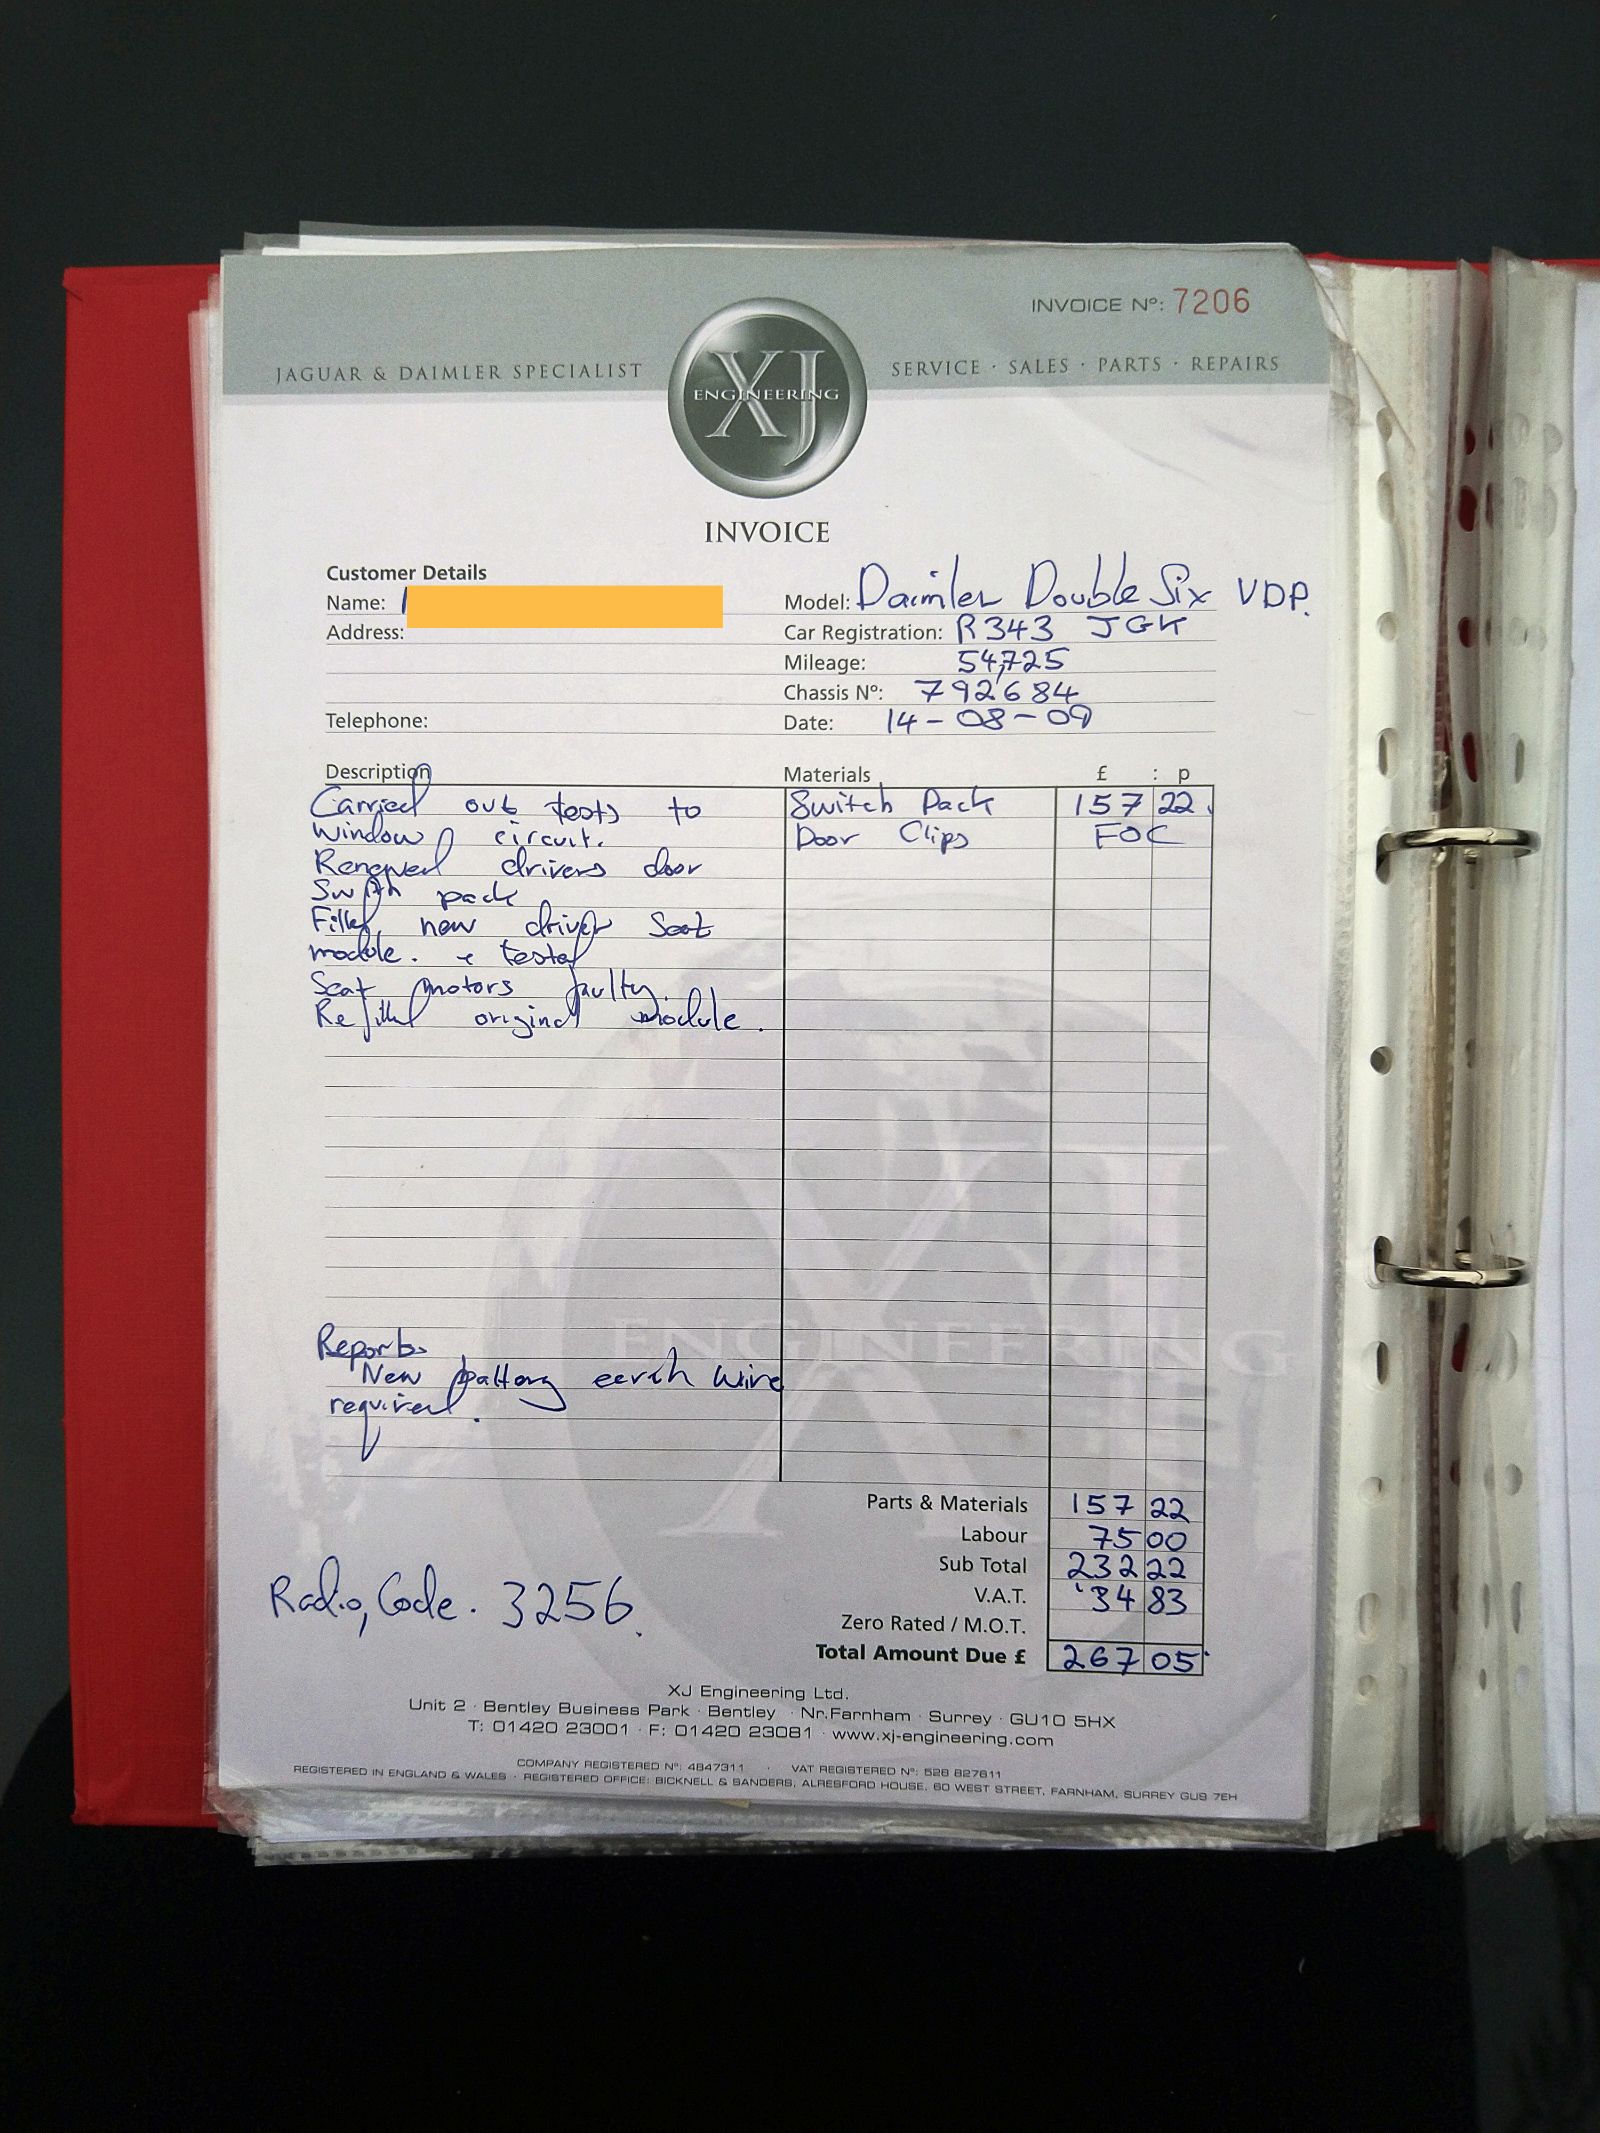 INVOICE Nº: 7206
JAGUAR & DAIMLER SPECIALIST
XJ
ENGINEERING
SERVICE · SALES · PARTS · REPAIRS
INVOICE
Customer Details
Name:
Address:
Telephone:
Model: Daimler Double Six VDP.
Car Registration: R343 JGK
Mileage: 54,725
Chassis Nº: 792684
Date: 14-08-09
Description
Materials £ : p
Carried out tests to
window circuit.
Renewed drivers door
Switch pack
Fitted new driver Seat
module. & tested
Seat motors faulty.
Refitted original module.
Switch Pack 157 22.
Door Clips FOC
Report.
New battery earth wire
required.
ENGINEERING
Parts & Materials 157 22
Labour 75 00
Sub Total 232 22
V.A.T. 34 83
Zero Rated / M.O.T.
Total Amount Due £ 267 05
Radio Code. 3256.
XJ Engineering Ltd.
Unit 2 · Bentley Business Park · Bentley · Nr.Farnham · Surrey · GU10 5HX
T: 01420 23001 · F: 01420 23081 · www.xj-engineering.com
COMPANY REGISTERED Nº: 4847311 · VAT REGISTERED Nº: 528 827611
REGISTERED IN ENGLAND & WALES · REGISTERED OFFICE: BICKNELL & SANDERS, ALRESFORD HOUSE, 60 WEST STREET, FARNHAM, SURREY GU9 7EH